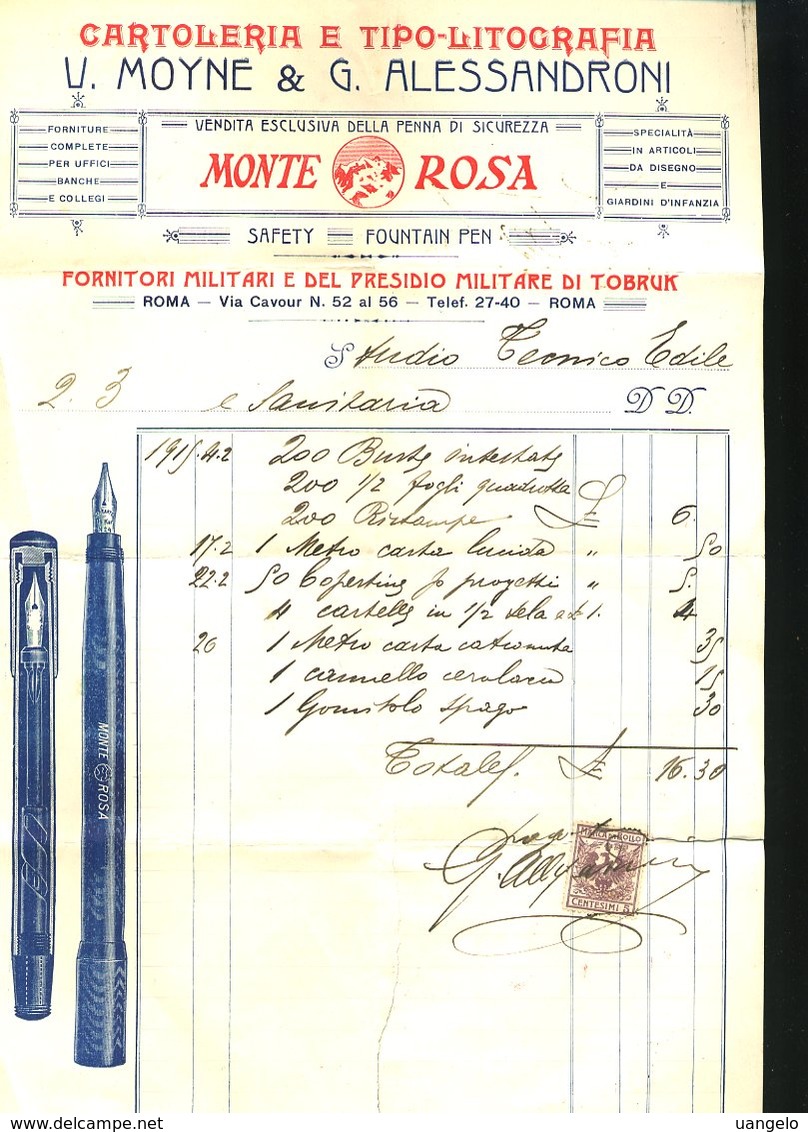 CARTOLERIA E TIPO-LITOGRAFIA
U. MOYNE & G. ALESSANDRONI
FORNITURE
COMPLETE
PER UFFICI
BANCHE
E COLLEGI
VENDITA ESCLUSIVA DELLA PENNA DI SICUREZZA
MONTE ROSA
SPECIALITÀ
IN ARTICOLI
DA DISEGNO
E
GIARDINI D'INFANZIA
SAFETY FOUNTAIN PEN
FORNITORI MILITARI E DEL PRESIDIO MILITARE DI TOBRUK
ROMA — Via Cavour N. 52 al 56 — Telef. 27-40 — ROMA
Studio Tecnico Edile
2. 3 e Sanitaria D D.
1915. 4.2 200 Buste intestate
200 1/2 fogli quadrotta
200 Ristampe £ 6.
17.2 1 Metro carta lucida " 50
22.2 50 Copertine p progetti " 5.
4 cartelle in 1/2 tela a £ 1. 4
26 1 Metro carta 35
1 cannello 15
1 Gomitolo spago 30
Totale £ 16.30
MARCA DA BOLLO
CENTESIMI 5
MONTE ROSA
delcampe.net
uangelo